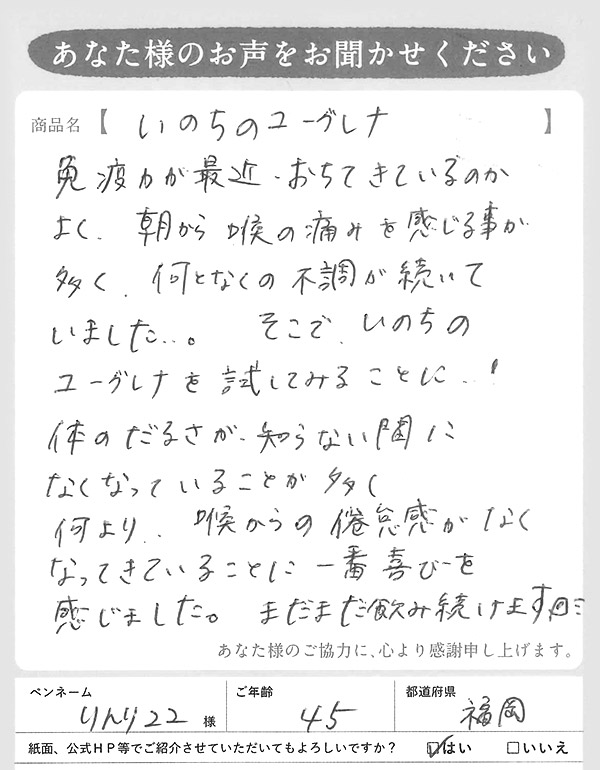 あなた様のお声をお聞かせください
商品名【 いのちのユーグレナ 】
免疫力が最近、おちてきているのか
よく、朝から喉の痛みを感じる事が
多く、何となくの不調が続いて
いました…。 そこで、いのちの
ユーグレナを試してみることに..!
体のだるさが、知らない間に
なくなっていることが多く
何より.. 喉からの倦怠感がなく
なってきていることに一番喜びを
感じました。 まだまだ飲み続けます
あなた様のご協力に、心より感謝申し上げます。
ペンネーム ご年齢 都道府県
りんりん22 様 45 福岡
紙面、公式HP等でご紹介させていただいてもよろしいですか? ☑はい □いいえ